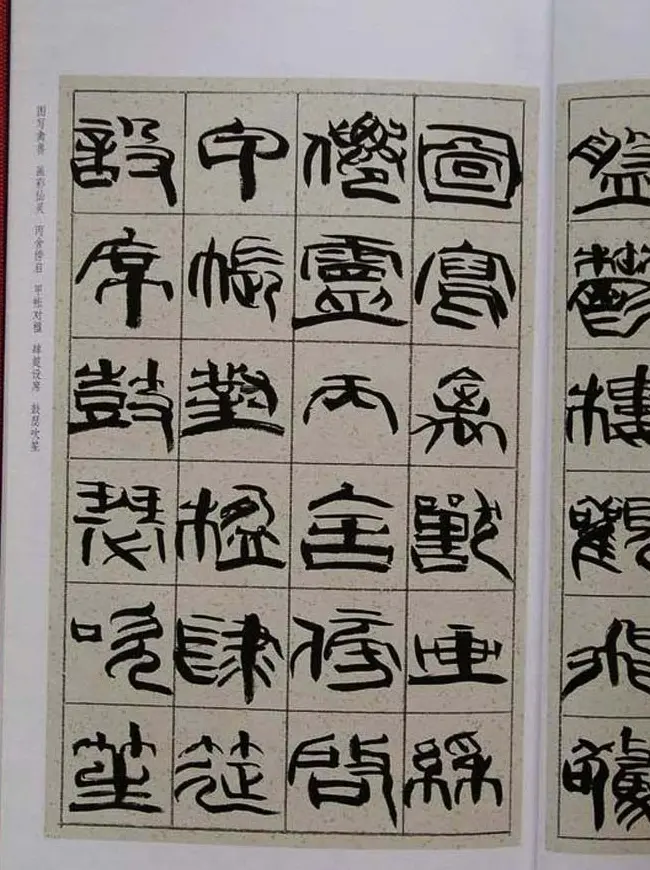 盤鬱樓觀飛驚
圖寫禽獸畫綵
僊靈丙舍傍啟
甲帳對楹肆筵
設席鼓瑟吹笙
图写禽兽 画彩仙灵 丙舍傍启 甲帐对楹 肆筵设席 鼓瑟吹笙